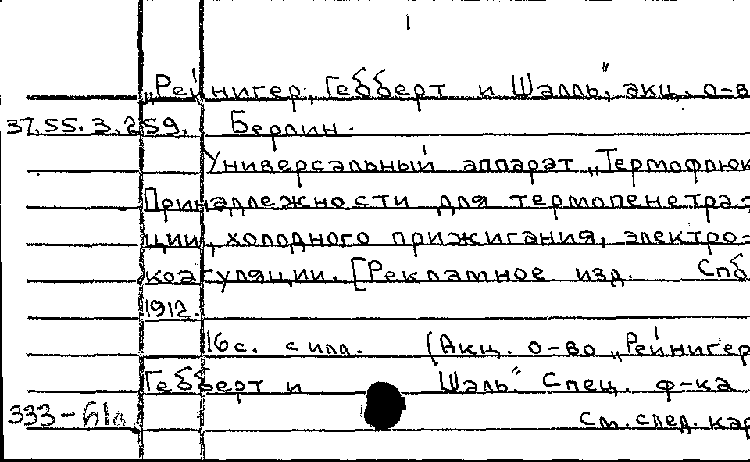 1
„Рейнигер, Гебберт и Шалль", акц. о-в
37.55.3.259. Берлин.
Универсальный аппарат „Термофлюк
Принадлежности для термопенетра-
ции, холодного прижигания, электро-
коагуляции. [Рекламное изд. Спб
1912.
16с. с илл. (Акц. о-во „Рейнигер
Гебберт и Шаль". Спец. ф-ка
333-61а см. след. кар